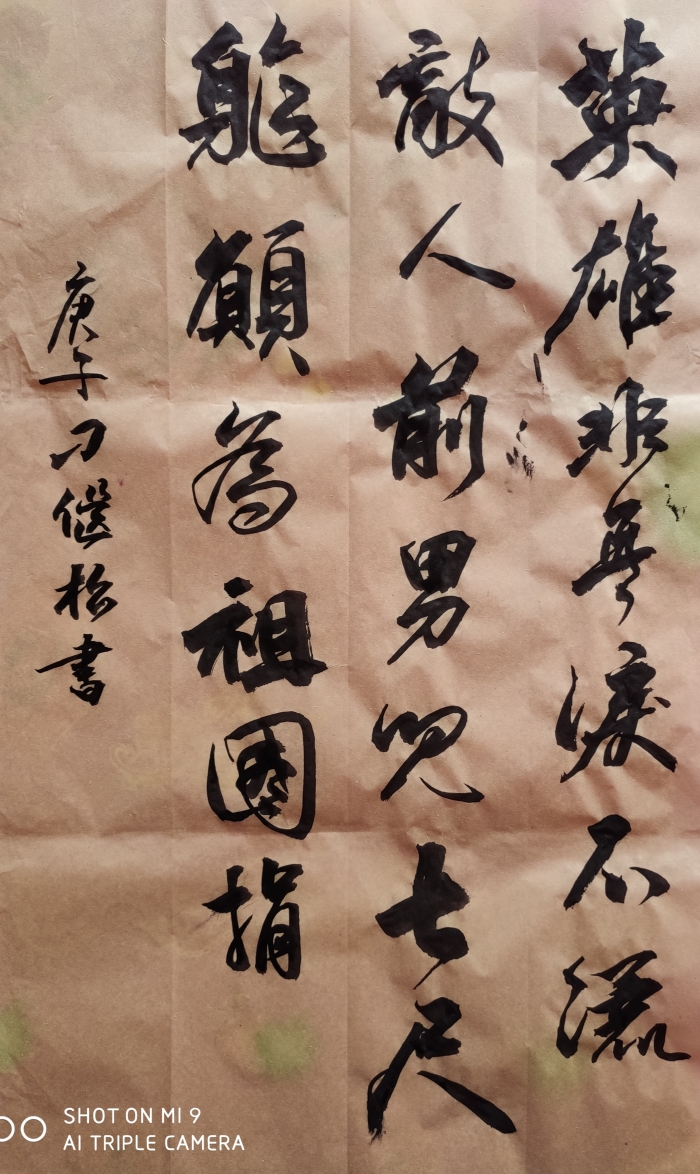 英雄非無淚不灑
敵人前男兒七尺
軀願為祖國捐
庚子刁偃松書
SHOT ON MI 9
AI TRIPLE CAMERA